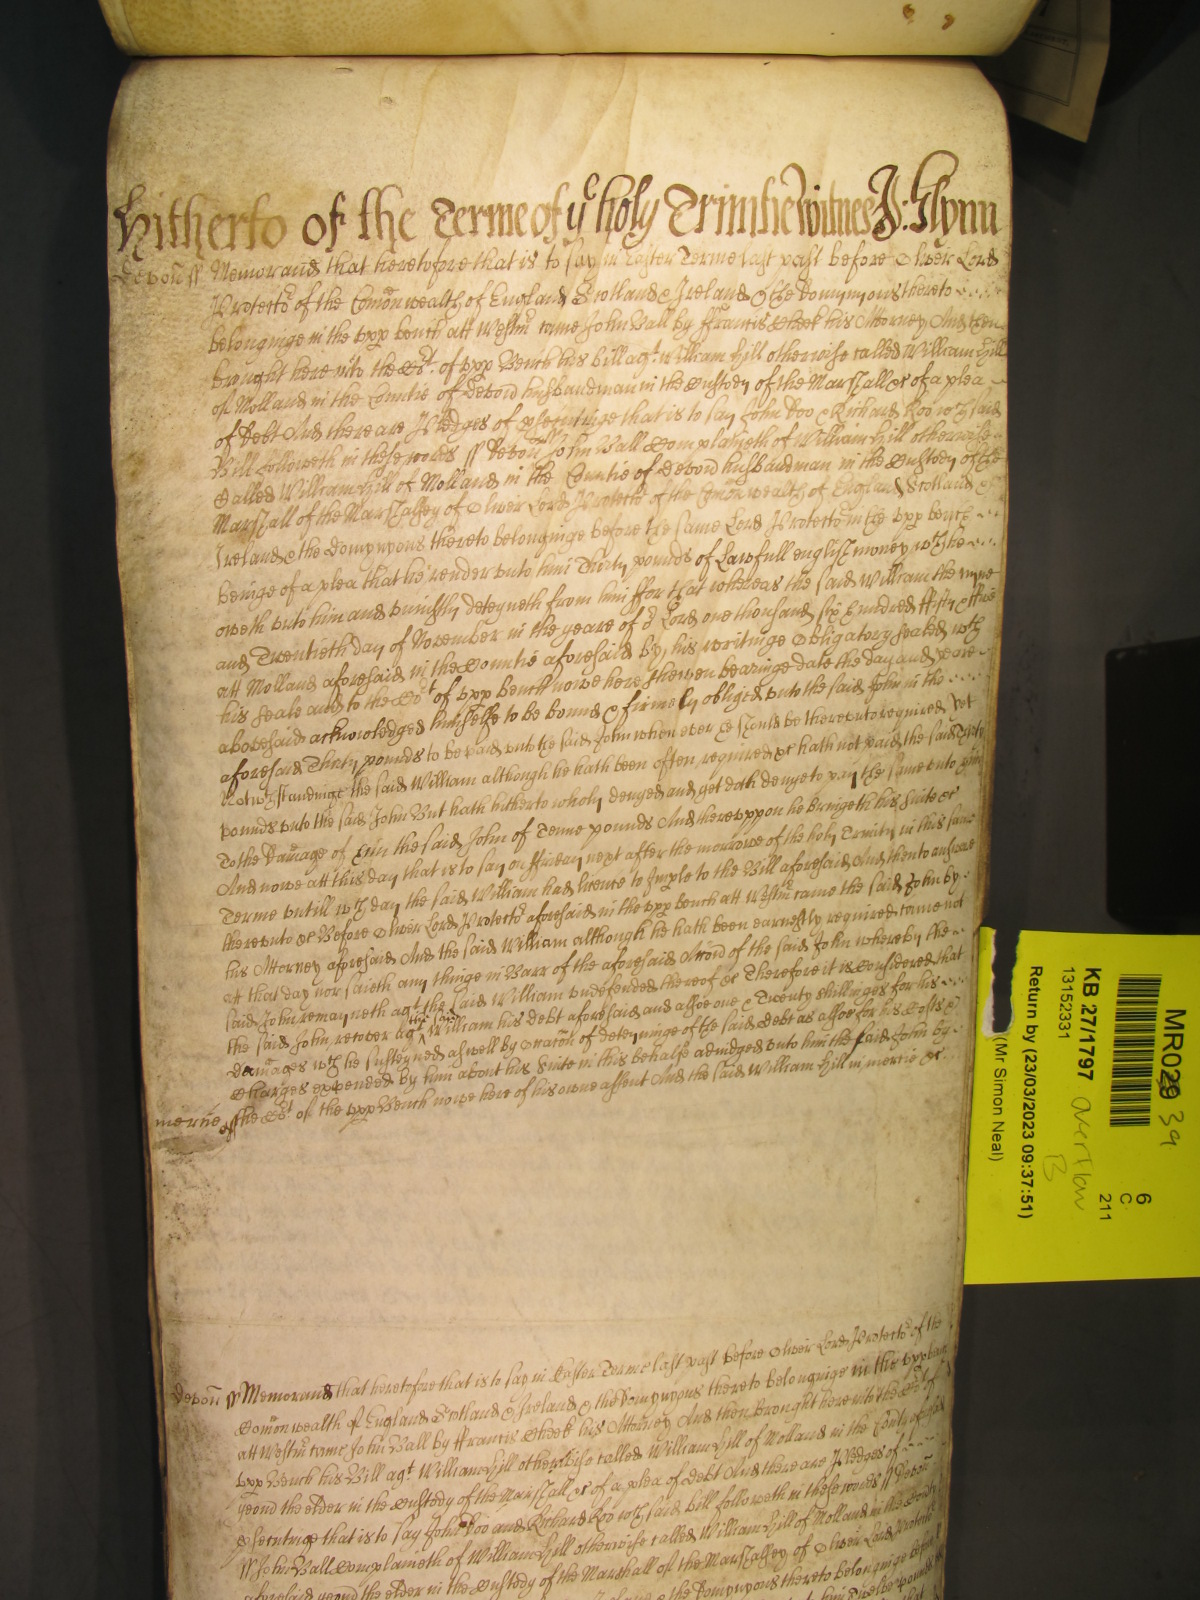 Hitherto of the Terme of ye holy Trinitie Witnes J: Glynn
Devon ss Memorand that heretofore that is to say in Easter Terme last past before Oliver Lord
Protector of the Comon wealth of England Scotland & Ireland & the Dominions thereto
belonginge in the upp bench att Westmr came John Vall by Francis Cheek his Attorney And then
brought here into the Cort of upp Bench his bill agt William Hill otherwise called William Hill
of Molland in the Countie of Devon husbandman in the Custody of the Marshall &c of a plea
of Debt And there are Pledges of psecutinge that is to say John Doo & Richard Roo wch said
Bill followeth in these words ss Devon ss John Vall Complaineth of William Hill otherwise
Called William Hill of Molland in the Countie of Devon husbandman in the Custody of the
Marshall of the Marshalsey of Oliver Lord Protector of the Comon wealth of England Scotland &
Ireland & the Dominions thereto belonginge before the same Lord Protector in the upp bench
beinge of a plea that he render unto him Thirty pounds of Lawfull english money wch he
oweth unto him and uniustly deteyneth from him ffor that whereas the said William the nyne
and Twentieth day of November in the yeare of or Lord one thousand six hundred ffifty & ffive
att Molland aforesaid in the Countie aforesaid by his writinge Obligatory sealed wth
his seale and to the Cort of upp bench nowe here shewen bearinge date the day and yeare
abovesaid acknowledged himselfe to be bound & firmely obliged unto the said John in the
aforesaid Thirty pounds to be paid unto the said John when ever he should be thereunto required Yet
Notwthstandinge the said William although he hath been often required &c hath not paid the said Thirty
pounds unto the said John But hath hitherto wholy denyed and yet doth denye to pay the same unto him
To the Damage of him the said John of Tenne pounds And thereuppon he bringeth his Suite &c
And nowe att this day that is to say on ffriday next after the morrowe of the holy Trinity in this same
Terme untill wch day the said William had licence to Imple to the Bill aforesaid And then to answere
thereunto &c Before Oliver Lord Protector aforesaid in the upp bench att Westmr came the said John by
his Attorney aforesaid And the said William although he hath been earnestly required came not
att that day nor saieth any thinge in Barr of the aforesaid Accon of the said John whereby the
said John remayneth agt the said William undefended thereof &c Therefore it is Considered that
the said John recover agt the said William his debt aforesaid and alsoe one & Twenty shillinges for his
damages wch he susteyned aswell by occasion of deteyninge of the said debt as alsoe for his Costs &
Charges expended by him about his Suite in this behalfe adiudged unto him the said John by
mercie the Cort of the upp Bench nowe here of his owne assent And the said William Hill in mercie &c
Devon ss Memorand that heretofore that is to say in Easter Terme last past before Oliver Lord Protector of the
Comon wealth of England Scotland & Ireland & the Dominions thereto belonginge in the upp bench
att Westmr came John Vall by Francis Cheek his Attorney And then Brought here into the Cort of
upp Bench his Bill agt William Hill otherwise called William Hill of Molland in the County of
yeond the elder in the Custody of the Marshall &c of a plea of debt And there are Pledges of
psecutinge that is to say John Doo and Richard Roo wch said bill followeth in these words ss Devon
ss John Vall Complaineth of William Hill otherwise called William Hill of Molland in the County
aforesaid yeond the elder in the Custody of the Marshall of the Marshalsey of Oliver Lord Protector
Ireland & the Dominions thereto belonginge before
Twelve pounds
MR029 39
6
C
211
KB 27/1797 overflow
B
13152331
Return by (23/03/2023 09:37:51)
(Mr Simon Neal)